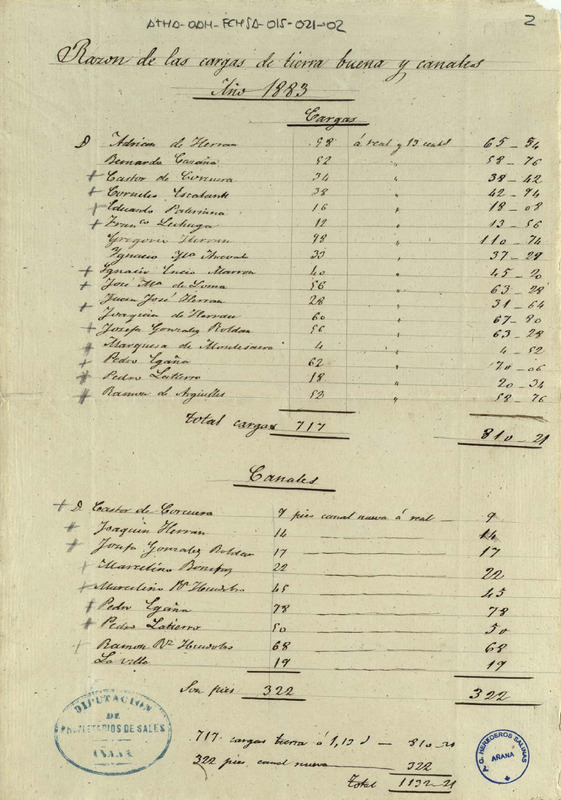 ATHA-DAH-FCHSA-015-021-02
2
Razon de las cargas de tierra buena y canales
Año 1883
Cargas
D. Adrian de Herran 58 á real y 13 cents 65-54
Bernarda Cazaña 52 " 58-76
Castor de Corcuera 34 " 38-42
Cornelio Escalante 38 " 42-94
Eduardo 16 " 18-08
Franco Lechuga 12 " 13-56
Gregorio Herran 98 " 110-74
Ignacio 33 " 37-29
Ignacio Lucio Marron 40 " 45-20
José Ma. de Loma 56 " 63-28
Juan José Herran 28 " 31-64
Joaquin de Herran 60 " 67-80
Josefa Gonzalez Roldan 56 " 63-28
Marquesa de Montesacro 4 " 4-52
Pedro Egaña 62 " 70-06
Pedro Latierro 18 " 20-34
Ramon de Argüelles 52 " 58-76
Total cargas 717 810-21
Canales
D. Castor de Corcuera 9 pies canal nueva á real 9
Joaquin Herran 14 14
Josefa Gonzalez Roldan 17 17
Marcelino Bonifaz 22 22
Marcelino Rz. 45 45
Pedro Egaña 78 78
Pedro Latierro 50 50
Ramon Rz. 68 68
La villa 19 19
Son pies 322 322
DIPUTACION
DE
PROPIETARIOS DE SALES
717 cargas tierra á 1,13 d — 810-21
322 pies canal nueva — 322
Total 1132-21
G. HEREDEROS SALINAS
ARANA